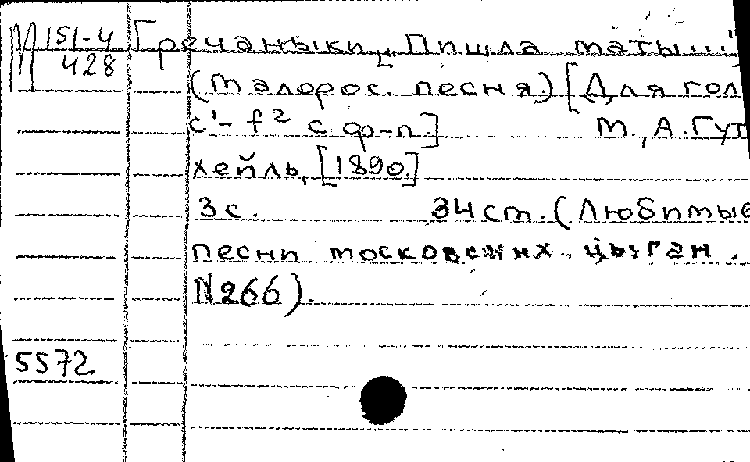 М 151-4
428
Гречаныки, [Пишла маты..."
(малорос. песня.) [Для гол
c¹-f² с ф-п.] М., А.Гут
хейль, [1890.]
3 с. 34 ст. (Любимые
песни московских цыган.
N266).
5572